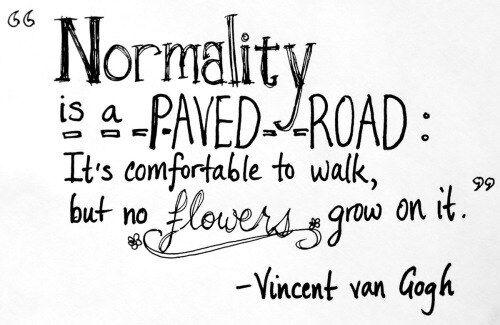 “Normality
is a PAVED ROAD:
It's comfortable to walk,
but no flowers grow on it.”
-Vincent van Gogh